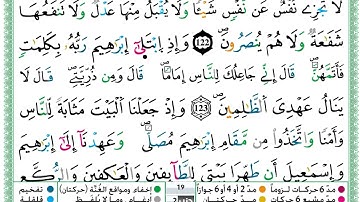 لَا تَجْزِے نَفْسٌ عَن نَّفْسٍ شَيْـًٔا وَلَا يُقْبَلُ مِنْهَا عَدْلٌ وَلَا نَنفَعُهَا
شَفَٰعَةٌ وَلَا هُمْ يُنصَرُونَ 122 وَإِذِ اِبْتَلَىٰٓ إِبْرَٰهِيمَ رَبُّهُۥ بِكَلِمَٰتٍ
فَأَتَمَّهُنَّ قَالَ إِنِّي جَاعِلُكَ لِلنَّاسِ إِمَامًا قَالَ وَمِن ذُرِّيَّتِي قَالَ لَا
يَنَالُ عَهْدِيَ اَلظَّٰلِمِينَ 123 وَإِذْ جَعَلْنَا اَلْبَيْتَ مَثَابَةً لِّلنَّاسِ
وَأَمْنًا وَاتَّخَذُوا مِن مَّقَامِ إِبْرَٰهِيمَ مُصَلًّى وَعَهِدْنَا إِلَىٰٓ إِبْرَٰهِيمَ
وَإِسْمَٰعِيلَ أَن طَهِّرَا بَيْتِيَ لِلطَّآئِفِينَ وَالْعَٰكِفِينَ وَالرُّكَّعِ
19
مدّ 6 حركات لزوماً مدّ 2 أو 4 أو 6 جوازاً إخفاء ومواقع الغُنَّة (حركتان) تفخيم
مدّ مشبع 6 حركات مدّ حركتان إدغام، وما لا يُلفَظ قلقلة